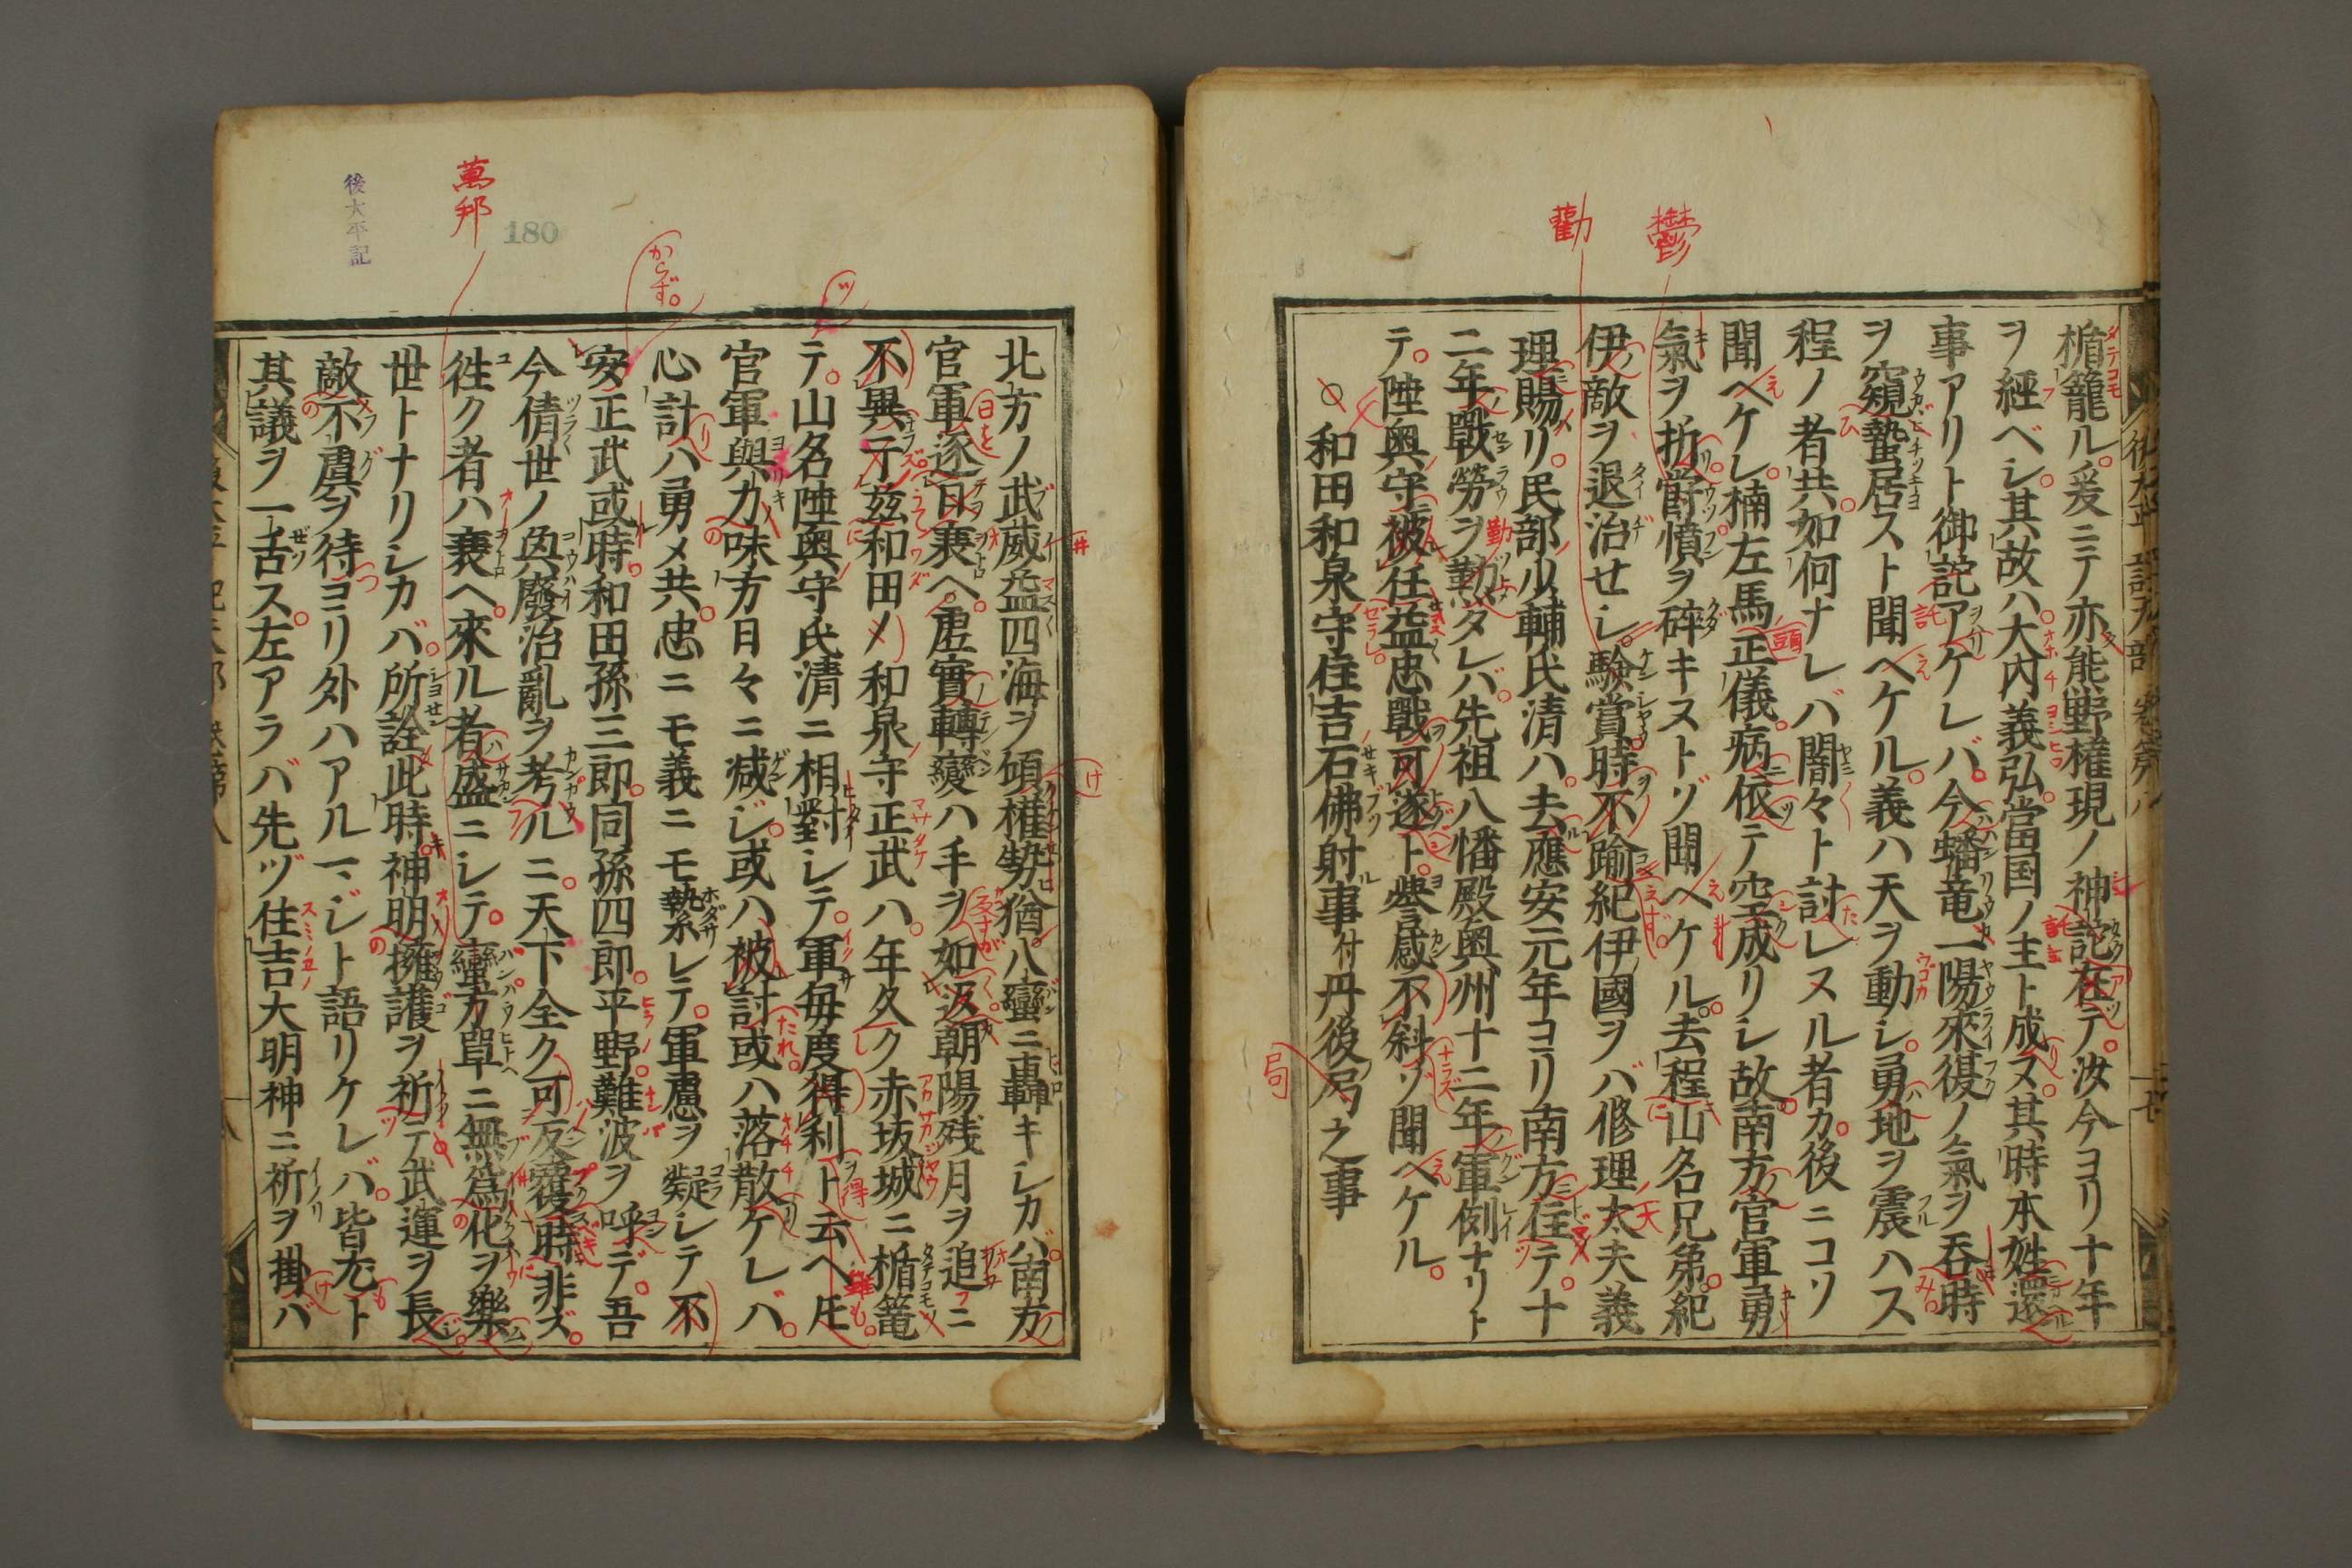 楯籠ル爰ニテ亦能野権現ノ神託在テ汝今ヨリ十年
ヲ經ベシ其故ハ大内義弘當国ノ主ト成ス其時本姓還
事アリト御託アケレバ今蟠竜一陽來復ノ氣ヲ呑時
ヲ窺蟄居スト聞ヘケル義ハ天ヲ動シ勇地ヲ震ハス
程ノ者共如何ナレバ闇々ト討レスル者カ後ニコソ
聞ヘケレ楠左馬正儀病依テ空成リシ故南方官軍勇
氣ヲ折欝憤ヲ碎キストゾ聞ヘケル去程山名兄弟紀
伊敵ヲ退治せシ驗賞時不踰紀伊國ヲバ修理太夫義
理賜リ民部少輔氏清ハ去應安元年ヨリ南方在テ十
二年戰勞ヲ勤タレバ先祖八幡殿奥州十二年軍例ナリト
テ陸奥守被任益忠戰可遂ト叡感不斜ゾ聞ヘケル
和田和泉守住吉石佛射事付丹後局之事
後太平記
180
萬邦
鬱
勸
北方ノ武威益四海ヲ傾權勢猶八蠻ニ轟キシカバ南方
官軍逐日衰へ虚實轉變ハ手ヲ如返朝陽残月ヲ追ニ
不異于兹和田ノ和泉守正武ハ年久ク赤坂城ニ楯篭
テ山名陸奥守氏清ニ相對シテ軍毎度得利ト云ヘ圧
官軍與力味方日々ニ減ジ或ハ被討或ハ落散ケレバ
心計ハ勇メ共忠ニモ義ニモ縶シテ軍慮ヲ凝シテ不
安正武或時和田孫三郎同孫四郎平野難波ヲ呼デ吾
今倩世ノ興廢治亂ヲ考ルニ天下全ク可反覆時非ズ
徃ク者ハ衰ヘ來ル者盛ニシテ蠻方單ニ無爲化ヲ樂
世トナリシカバ所詮此時神明擁護ヲ祈テ武運ヲ長
敵不虞ヲ待ヨリ外ハアルマジト語リケレバ皆尤ト
其議ヲ一舌ス左アラバ先ヅ住吉大明神ニ祈ヲ掛バ